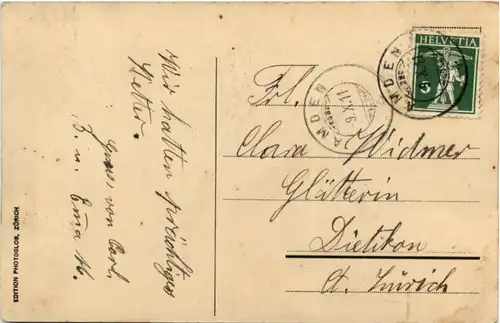 Wir hatten prächtiges
Wetter.
Gruss von Carl
u. Emma W.
EDITION PHOTOGLOB, ZÜRICH
HELVETIA
5
AMDEN
AMDEN
Frl.
Clara Widmer
Glätterin
Dietikon
Ct. Zürich